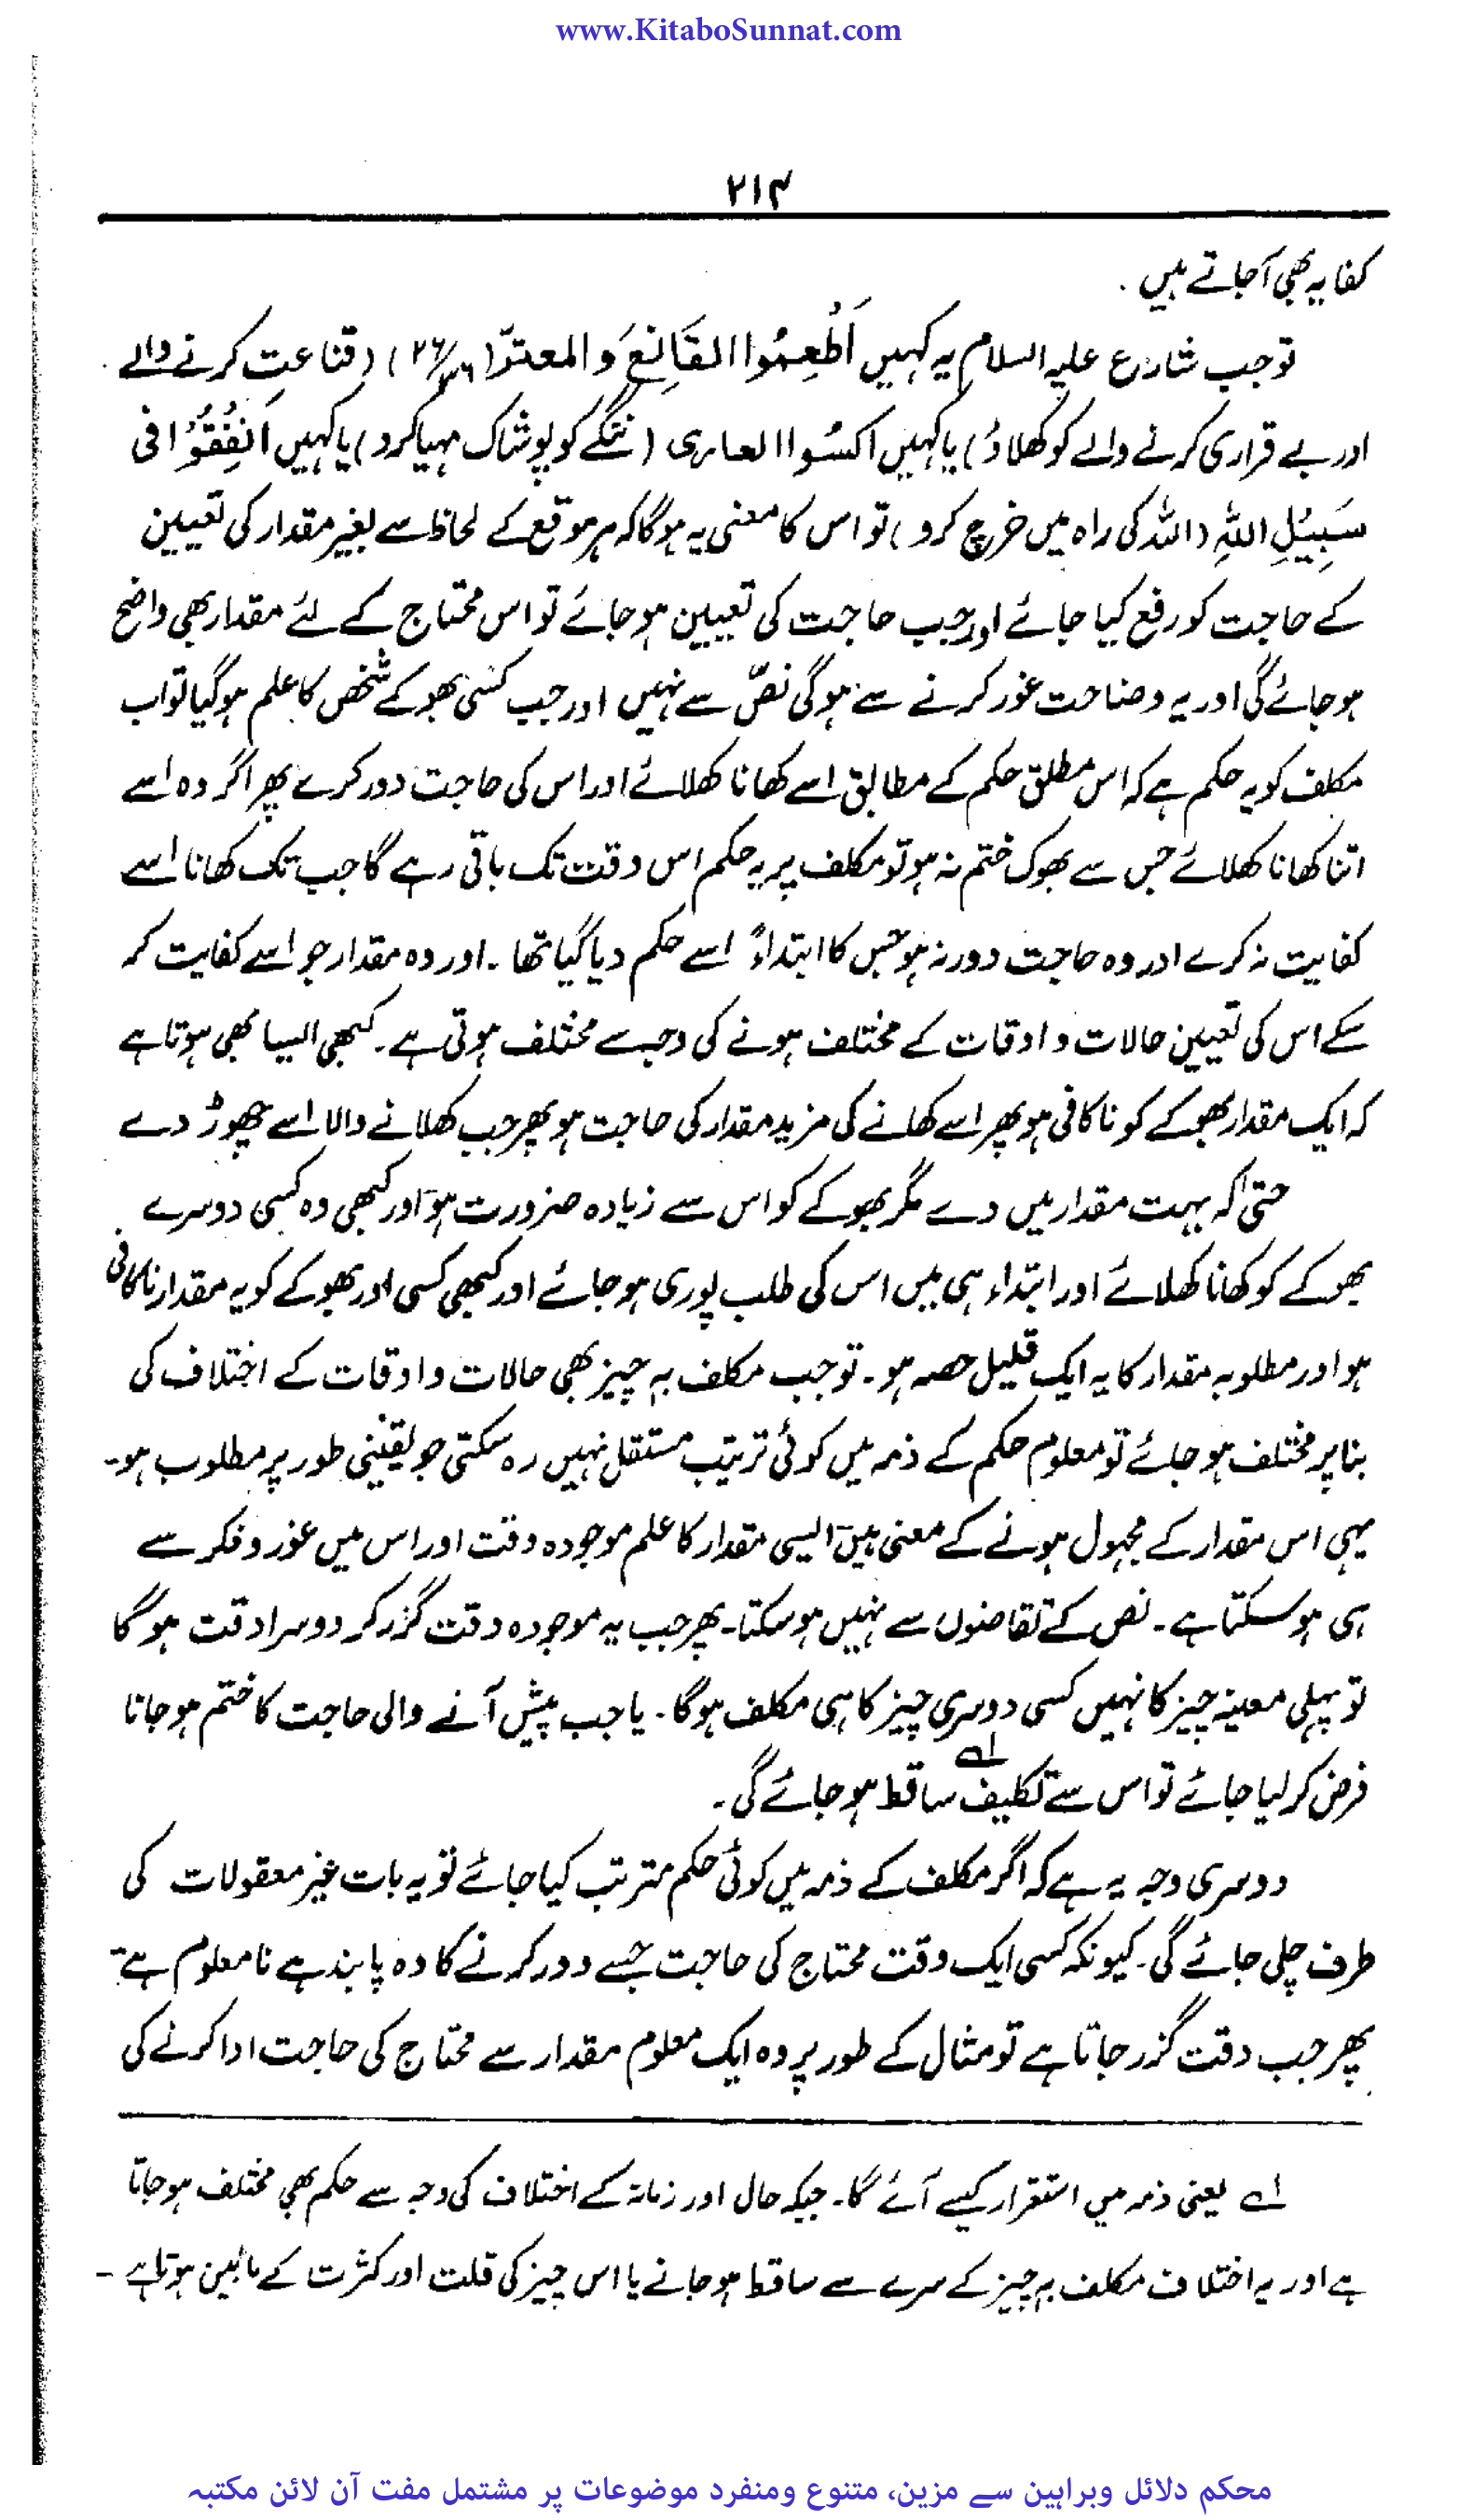 www.KitaboSunnat.com
۲۱۴
کفایہ بھی آجاتے ہیں.
تو جب شارع علیہ السلام یہ کہیں اَطْعِمُوا القَانِعَ وَالمعترّ (قناعت کرنے والے
اور بے قراری کرنے والے کو کھلاؤ) یا کہیں اکسُوا العاری (ننگے کو پوشاک مہیا کرو) یا کہیں اَنفِقُوْا فی
سَبِیْلِ اللہِ (اللہ کی راہ میں خرچ کرو) تو اس کا معنی یہ ہوگا کہ ہر موقع کے لحاظ سے بغیر مقدار کی تعیین
کے حاجت کو رفع کیا جائے اور جب حاجت کی تعیین ہو جائے تو اس محتاج کے لئے مقدار بھی واضح
ہو جائے گی اور یہ وضاحت غور کرنے سے ہوگی نصّ سے نہیں اور جب کسی بھوکے شخص کا علم ہوگیا تو اب
مکلف کو یہ حکم ہے کہ اس مطلق حکم کے مطابق اسے کھانا کھلائے اور اس کی حاجت دور کرے پھر اگر وہ اسے
اتنا کھانا کھلائے جس سے بھوک ختم نہ ہو تو مکلف پر یہ حکم اس وقت تک باقی رہے گا جب تک کھانا اسے
کفایت نہ کرے اور وہ حاجت دور نہ ہو جس کا ابتداءً اسے حکم دیا گیا تھا۔ اور وہ مقدار جو اسے کفایت کر
سکے اس کی تعیین حالات و اوقات کے مختلف ہونے کی وجہ سے مختلف ہوتی ہے۔ کبھی ایسا بھی ہوتا ہے
کہ ایک مقدار بھوکے کو ناکافی ہو پھر اسے کھانے کی مزید مقدار کی حاجت ہو پھر جب کھلانے والا اسے چھوڑ دے
حتیٰ کہ بہت مقدار میں دے مگر بھوکے کو اس سے زیادہ ضرورت ہو اور کبھی وہ کسی دوسرے
بھوکے کو کھانا کھلائے اور ابتداء ہی میں اس کی طلب پوری ہو جائے اور کبھی کسی اور بھوکے کو یہ مقدار ناکافی
ہو اور مطلوبہ مقدار کا یہ ایک قلیل حصہ ہو۔ تو جب مکلف بہ چیز بھی حالات و اوقات کے اختلاف کی
بنا پر مختلف ہو جائے تو معلوم حکم کے ذمہ میں کوئی ترتیب مستقل نہیں رہ سکتی جو یقینی طور پر مطلوب ہو۔
یہی اس مقدار کے مجہول ہونے کے معنی ہیں ایسی مقدار کا علم موجودہ وقت اور اس میں غور و فکر سے
ہی ہو سکتا ہے۔ نص کے تقاضوں سے نہیں ہو سکتا۔ پھر جب یہ موجودہ وقت گزر کر دوسرا وقت ہوگا
تو پہلی معینہ چیز کا نہیں کسی دوسری چیز کا ہی مکلف ہوگا۔ یا جب پیش آنے والی حاجت کا ختم ہو جانا
فرض کر لیا جائے تو اس سے تکلیف لے ساقط ہو جائے گی۔
دوسری وجہ یہ ہے کہ اگر مکلف کے ذمہ میں کوئی حکم مترتب کیا جائے تو یہ بات غیر معقولات کی
طرف چلی جائے گی۔ کیونکہ کسی ایک وقت محتاج کی حاجت جسے دور کرنے کا وہ پابند ہے نامعلوم ہے۔
پھر جب وقت گزر جاتا ہے تو مثال کے طور پر وہ ایک معلوم مقدار سے محتاج کی حاجت ادا کرنے کی
لے یعنی ذمہ میں استقرار کیسے آئے گا۔ جبکہ حال اور زمانہ کے اختلاف کی وجہ سے حکم بھی مختلف ہو جاتا
ہے اور یہ اختلاف مکلف بہ چیز کے سرے سے ساقط ہو جانے یا اس چیز کی قلت اور کثرت کے مابین ہوتا ہے۔
محکم دلائل وبراہین سے مزین، متنوع ومنفرد موضوعات پر مشتمل مفت آن لائن مکتبہ